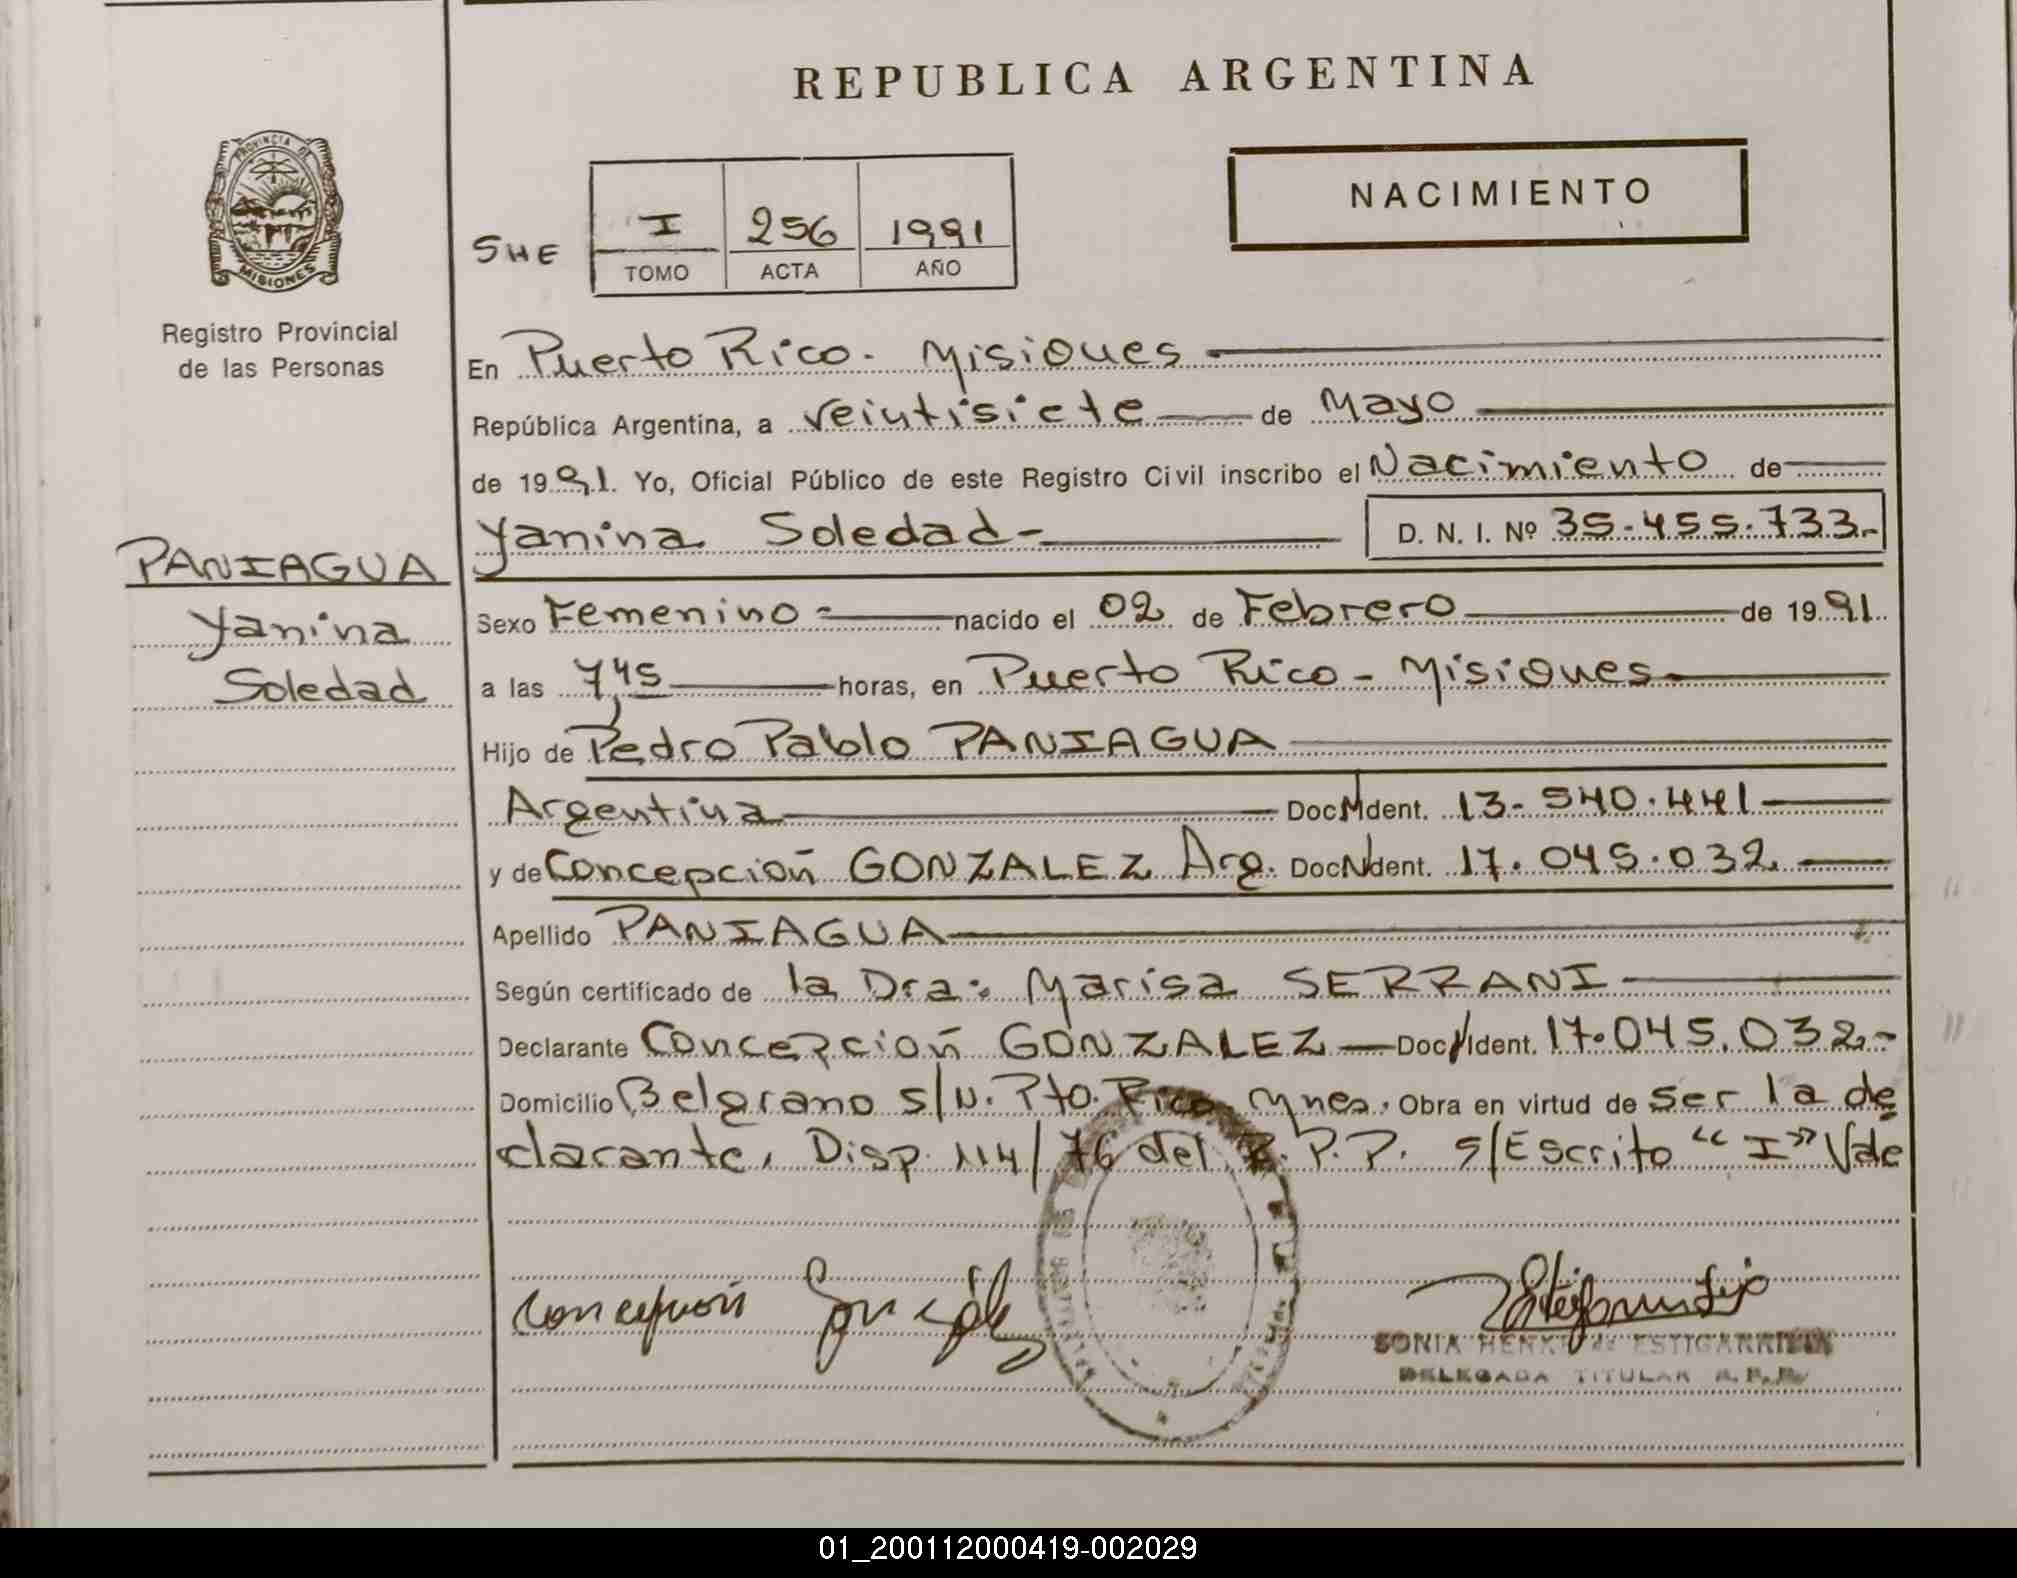 REPUBLICA ARGENTINA
PROVINCIA DE
MISIONES
Registro Provincial
de las Personas
NACIMIENTO
SHE
I 256 1991
TOMO ACTA AÑO
En Puerto Rico. Misiones
República Argentina, a veintisiete de Mayo
de 1991. Yo, Oficial Público de este Registro Civil inscribo el Nacimiento de
Yanina Soledad- D. N. I. Nº 35.455.733.-
PANIAGUA
Yanina
Soledad
Sexo Femenino- nacido el 02 de Febrero de 1991.
a las 7,45 horas, en Puerto Rico - Misiones
Hijo de Pedro Pablo PANIAGUA
Argentina Doc. Ident. 13.540.441
y de Concepción GONZALEZ Arg. Doc. Ident. 17.045.032.
Apellido PANIAGUA
Según certificado de la Dra. Marisa SERRANI
Declarante Concepción GONZALEZ Doc. Ident. 17.045.032.-
Domicilio Belgrano s/n. Pto. Rico Mnes. Obra en virtud de ser la de
clarante. Disp. 114/76 del R.P.P. s/Escrito "I" Vde
Concepcion
SONIA HENKE de ESTIGARRIBIA
DELEGADA TITULAR R.P.P.
01_200112000419-002029